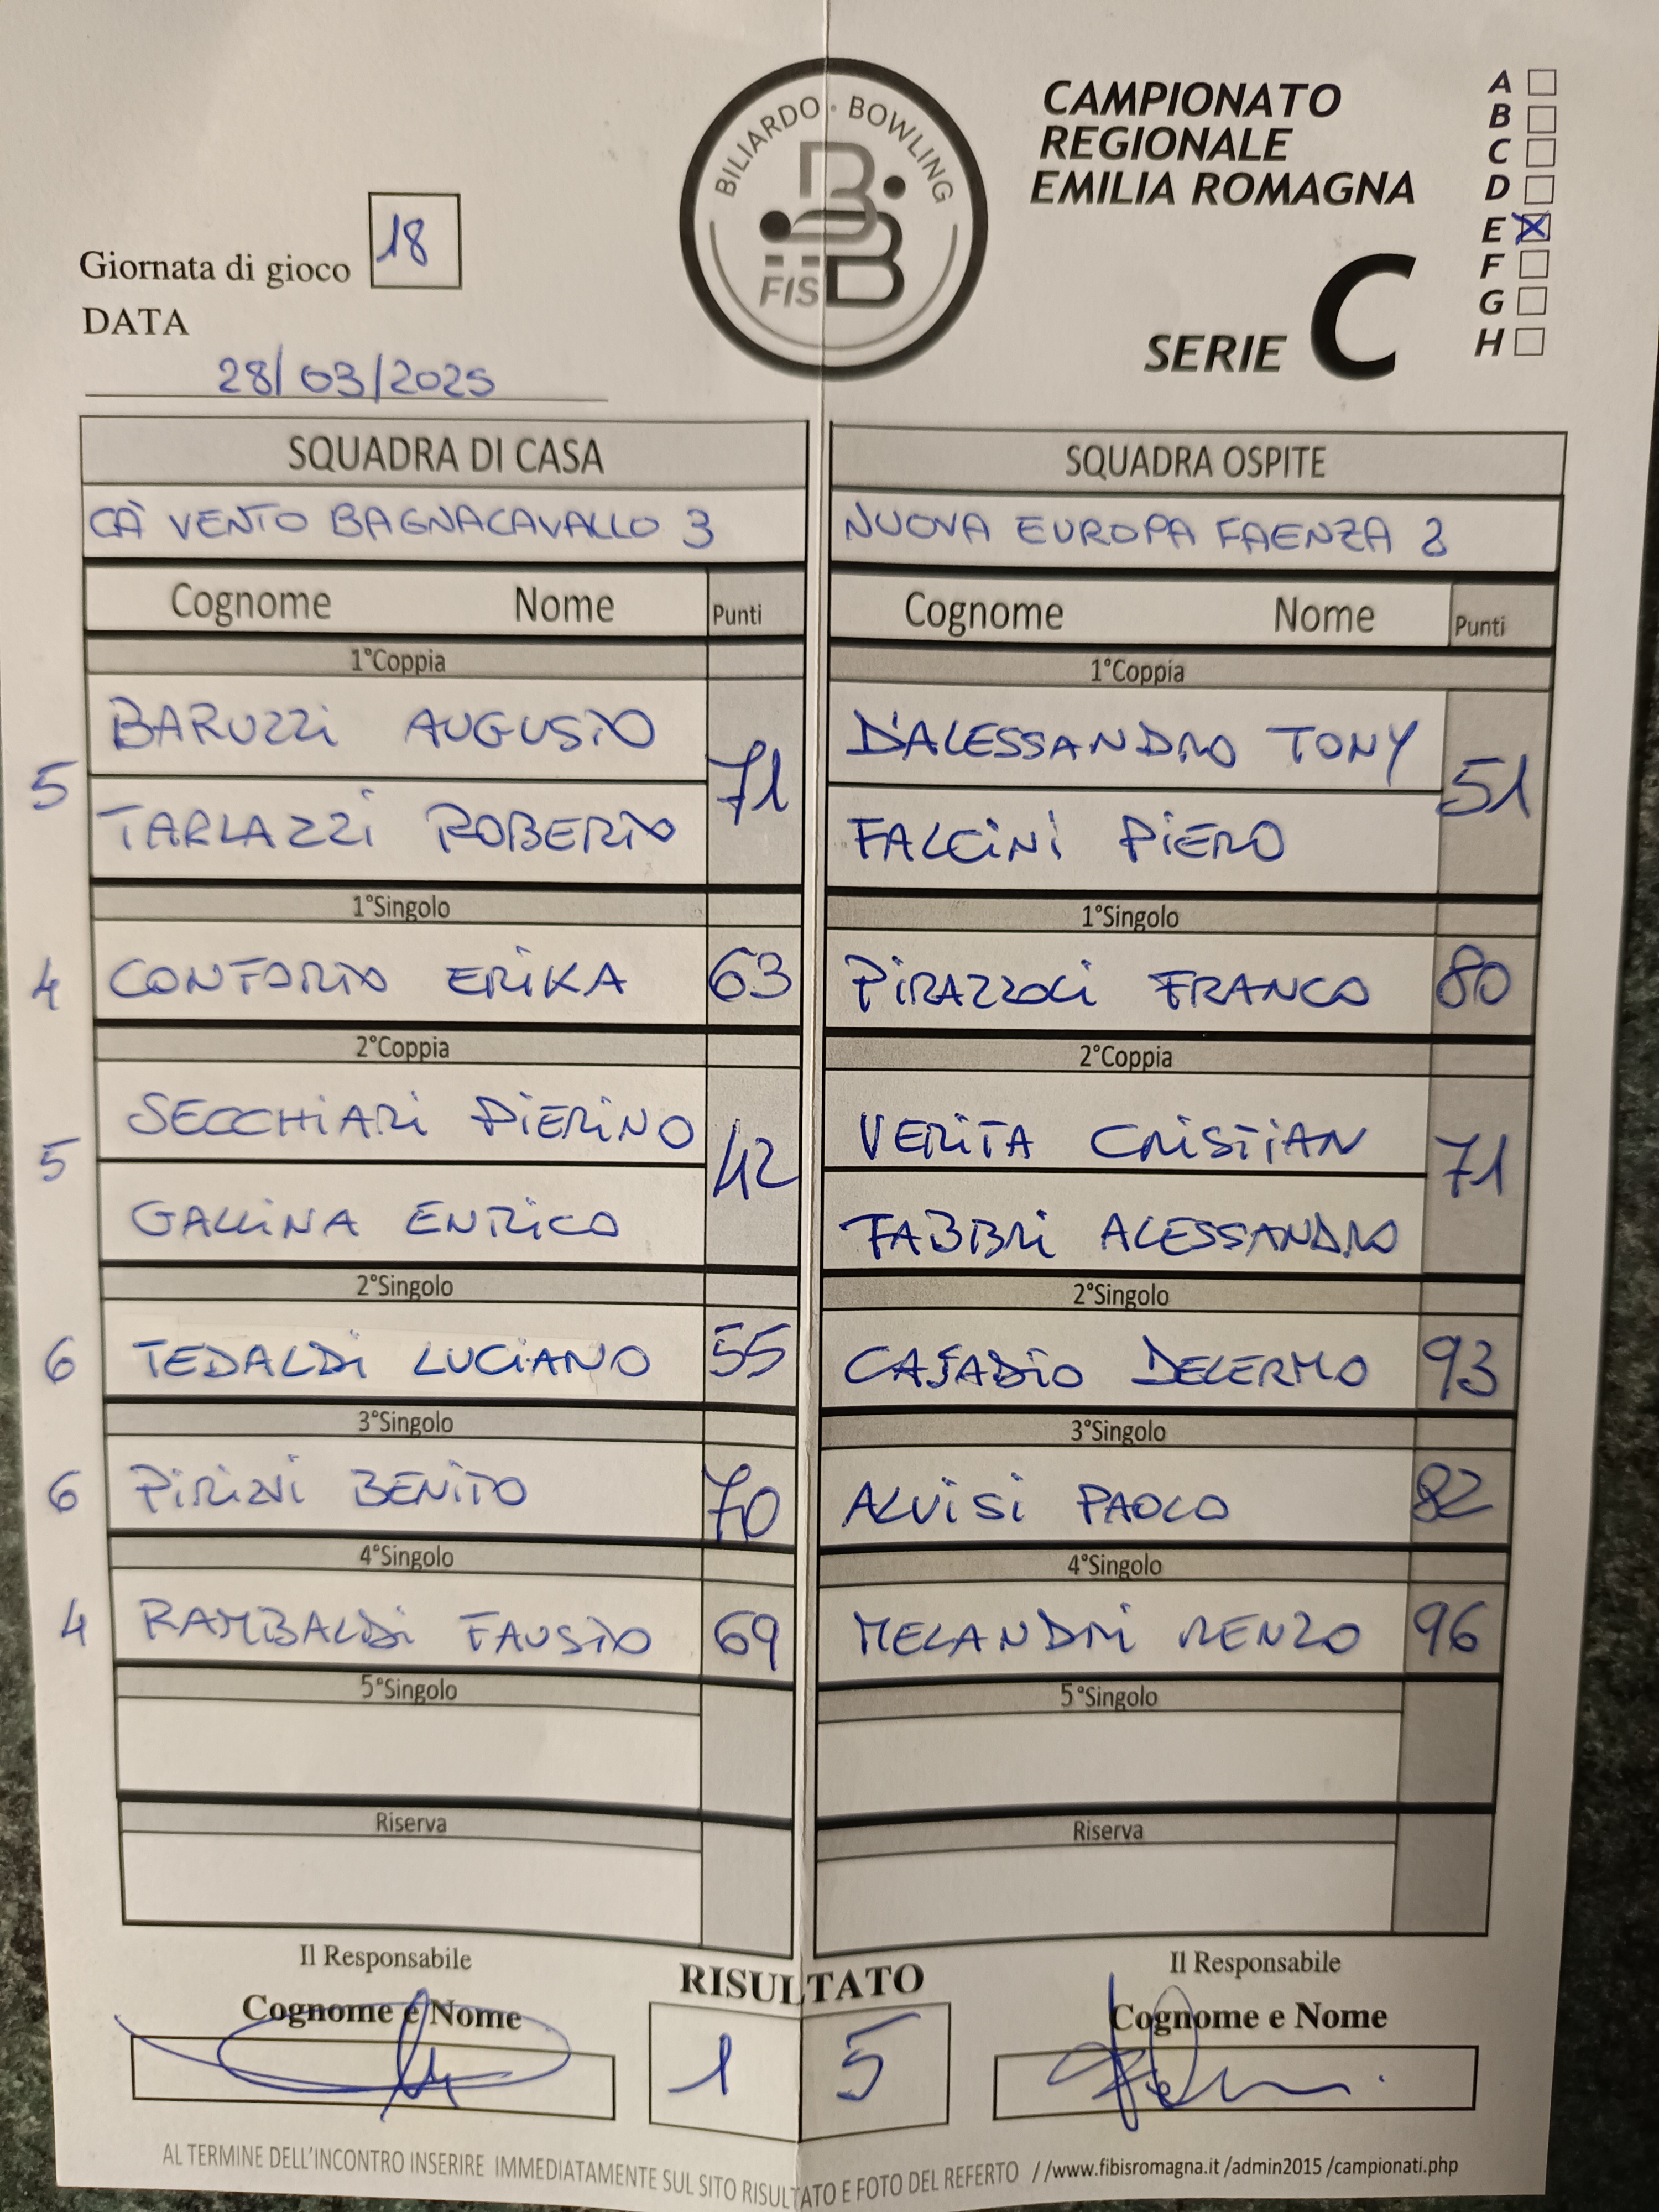 BILIARDO · BOWLING
FISBB
CAMPIONATO
REGIONALE
EMILIA ROMAGNA
SERIE C
A
B
C
D
E X
F
G
H
Giornata di gioco 18
DATA
28/03/2025
SQUADRA DI CASA
CÀ VENTO BAGNACAVALLO 3
Cognome Nome Punti
1°Coppia
5 BARUZZI AUGUSTO 71
TARLAZZI ROBERTO
1°Singolo
4 CONFORTO ERIKA 63
2°Coppia
5 SECCHIARI PIERINO 42
GALLINA ENRICO
2°Singolo
6 TEDALDI LUCIANO 55
3°Singolo
6 PIRINI BENITO 70
4°Singolo
4 RAMBALDI FAUSTO 69
5°Singolo
Riserva
Il Responsabile
Cognome e Nome
SQUADRA OSPITE
NUOVA EUROPA FAENZA 2
Cognome Nome Punti
1°Coppia
D'ALESSANDRO TONY 51
FALCINI PIERO
1°Singolo
PIRAZZOLI FRANCO 80
2°Coppia
VERITA CRISTIAN 71
FABBRI ALESSANDRO
2°Singolo
CASADIO DELERMO 93
3°Singolo
ALVISI PAOLO 82
4°Singolo
MELANDRI RENZO 96
5°Singolo
Riserva
Il Responsabile
Cognome e Nome
RISULTATO
1 5
AL TERMINE DELL'INCONTRO INSERIRE IMMEDIATAMENTE SUL SITO RISULTATO E FOTO DEL REFERTO //www.fibisromagna.it /admin2015 /campionati.php